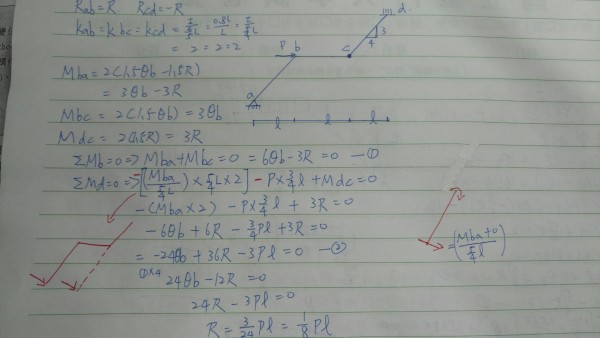 Rab=R Rcd=-R
Kab=Kbc=Kcd = I/(5/4 L) = 0.8I/L = I/(5/4 L)
= 2=2=2
Mba=2(1.5θb-1.5R)
= 3θb-3R
Mbc = 2(1.5θb) = 3θb
Mdc = 2(1.5R) = 3R
ΣMb=0 => Mba+Mbc=0 = 6θb-3R=0 —①
ΣMd=0 => -[(Mba/(5/4 L)) × 5/4 L × 2] - P×3/4 l + Mdc=0
-(Mba×2) - P×3/4 l + 3R=0
-6θb + 6R - 3/4 Pl + 3R=0
= -24θb + 36R - 3Pl = 0 —②
①×4 24θb-12R = 0
24R - 3Pl=0
R = 3/24 Pl = 1/8 Pl
P b
c
d
3
4
a
l l l
= ((Mba+0)/(5/4 l))